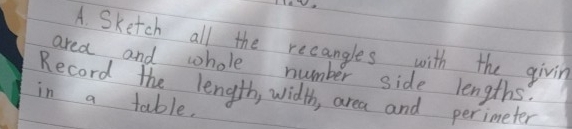 A. Sketch all the recangles with the givin
area and whole number side lengths.
Record the length, width, area and perimeter
in a table.